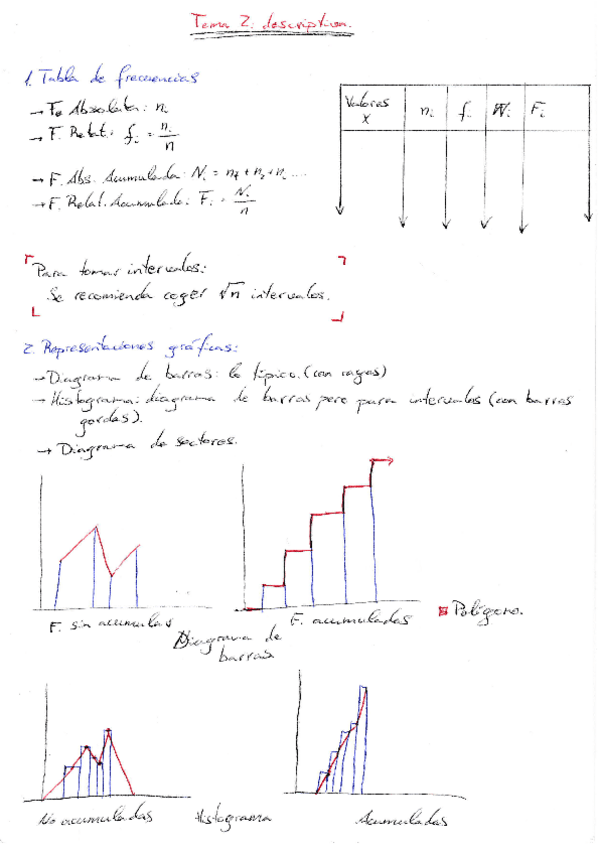 Tema 2: descriptiva.
1. Tabla de frecuencias
→ F. Absoluta: nᵢ
→ F. Relat: fᵢ = nᵢ/n
→ F. Abs. Acumulada: Nᵢ = n₁ + n₂ + nᵢ ....
→ F. Relat. Acumulada: Fᵢ = Nᵢ/n
Valores x nᵢ fᵢ Nᵢ Fᵢ
Para tomar intervalos:
Se recomienda coger √n intervalos.
2. Representaciones gráficas:
→ Diagrama de barras: lo típico. (con rayas)
→ Histograma: diagrama de barras pero para intervalos (con barras
gordas).
→ Diagrama de sectores.
F. sin acumular
F. acumuladas
Polígono.
Diagrama de
barras
No acumuladas
Histograma
Acumuladas